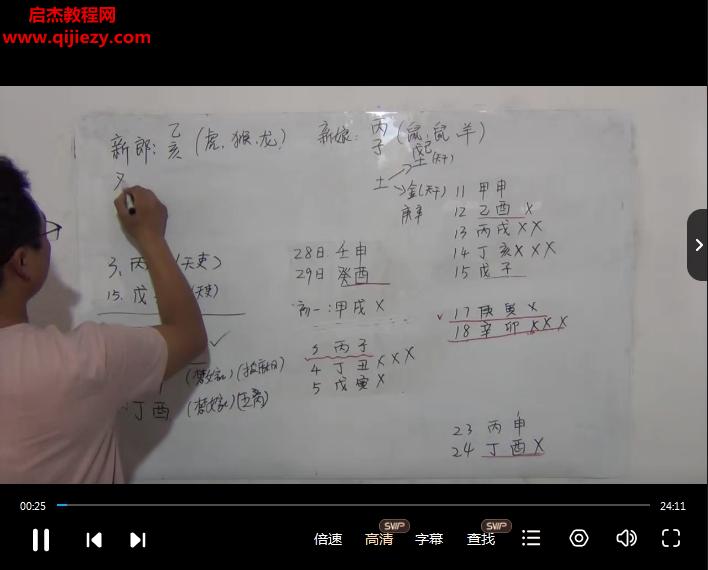 启杰教程网
www.qijiezy.com
新郎: 乙亥 (虎, 猴, 龙)
新娘: 丙子 (鼠, 鼠, 羊)
戊己
土 土(天干)
金(天干)
庚辛
11 甲申
12 乙酉 X
13 丙戌 X X
14 丁亥 X X X
15 戊子
17 庚寅 X
18 辛卯 X X X
23 丙申
24 丁酉 X
28日 壬申
29日 癸酉
初一: 甲戌 X
3 丙子
4 丁丑 X X X
5 戊寅 X
3、丙 (天吏)
15、戊 (天吏)
丁酉
00:25
24:11
倍速
高清
SWP
字幕
查找
SWP